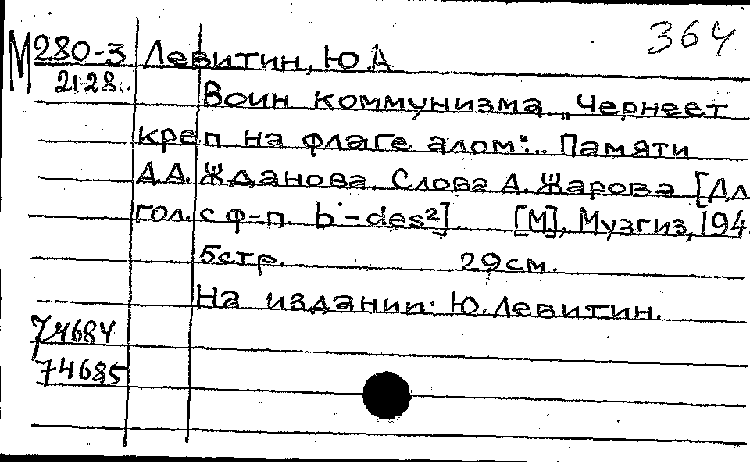 364
М280-3 Левитин, Ю А
2128.
Воин коммунизма „Чернеет
креп на флаге алом“.. Памяти
А.А. Жданова. Слова А. Жарова [Дл
гол. с ф-п. b'-des²] [М], Музгиз, 194
5стр. 29см.
На издании: Ю. Левитин.
74684
74685